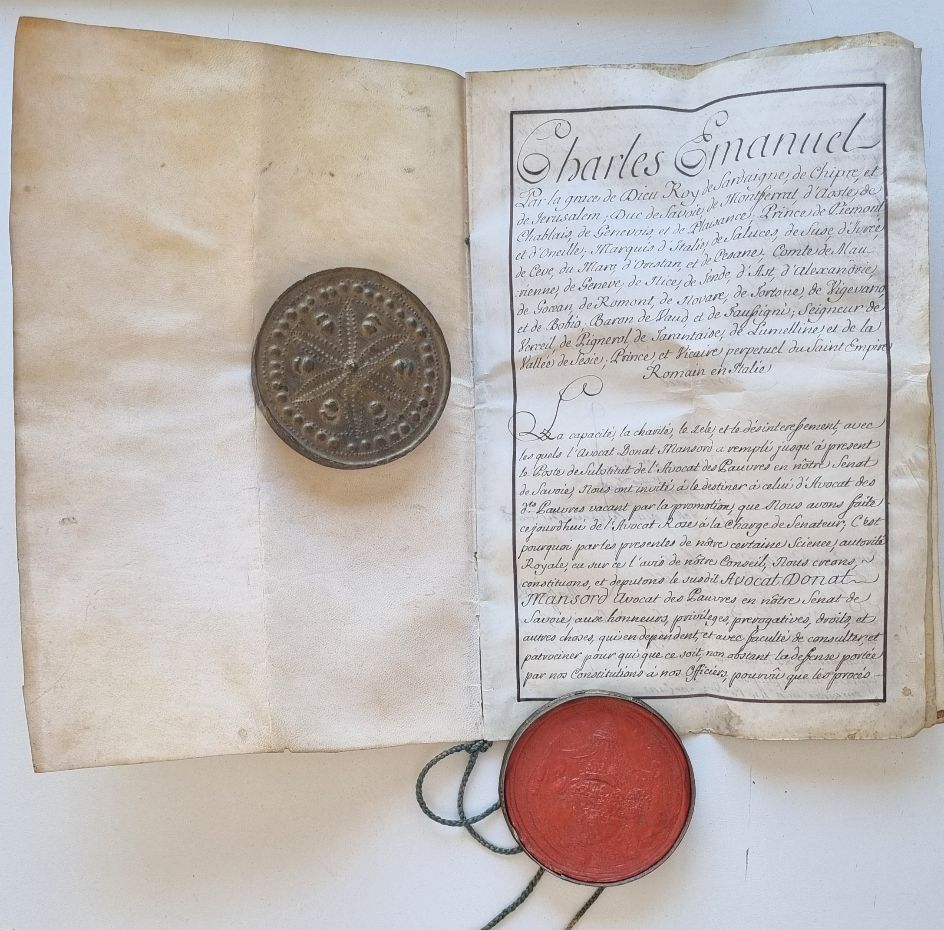 Charles Emanuel
Par la grace de Dieu Roy de Sardaigne, de Chipre, et
de Jerusalem; Duc de Savoie, de Montferrat, d'Aoste, de
Chablais, de Genevois, et de Plaisance; Prince de Piemont
et d'Oneille; Marquis d'Italie, de Saluces, de Suse, d'Ivrée,
de Ceve, du Maro, d'Oristan, et de Cesane; Comte de Mau-
rienne, de Geneve, de Nice, de Tende, d'Ast, d'Alexandrie,
de Gocean, de Romont, de Novare, de Tortone, de Vigevano,
et de Bobio; Baron de Vaud et de Faussigni; Seigneur de
Verceil de Pignerol de Tarantaise, de Lumelline, et de la
Vallée de Sesie; Prince, et Vicaire perpetuel du Saint Empire
Romain en Italie
La capacité, la charité, le zele, et le désinteressement, avec
les quels l'Avocat Donat Mansord a rempli jusqu'à present
le Poste de Substitut de l'Avocat des Pauvres en nôtre Senat
de Savoie, Nous ont invité à le destiner à celui d'Avocat des
d.ts Pauvres vacant par la promotion, que Nous avons faite
cejourdhui de l'Avocat Rose à la Charge de Senateur; C'est
pourquoi par les presentes de nôtre certaine Science, autorité
Royale, eu sur ce l'avis de nôtre Conseil, Nous creons,
constituons, et deputons le susdit Avocat Donat
Mansord Avocat des Pauvres en nôtre Senat de
Savoie, aux honneurs, privileges, prerogatives, droits, et
autres choses, qui en dependent, et avec faculté de consulter et
patrociner pour qui que ce soit, non obstant la deffense portée
par nos Constitutions à nos Officiers, pourvû que les procés